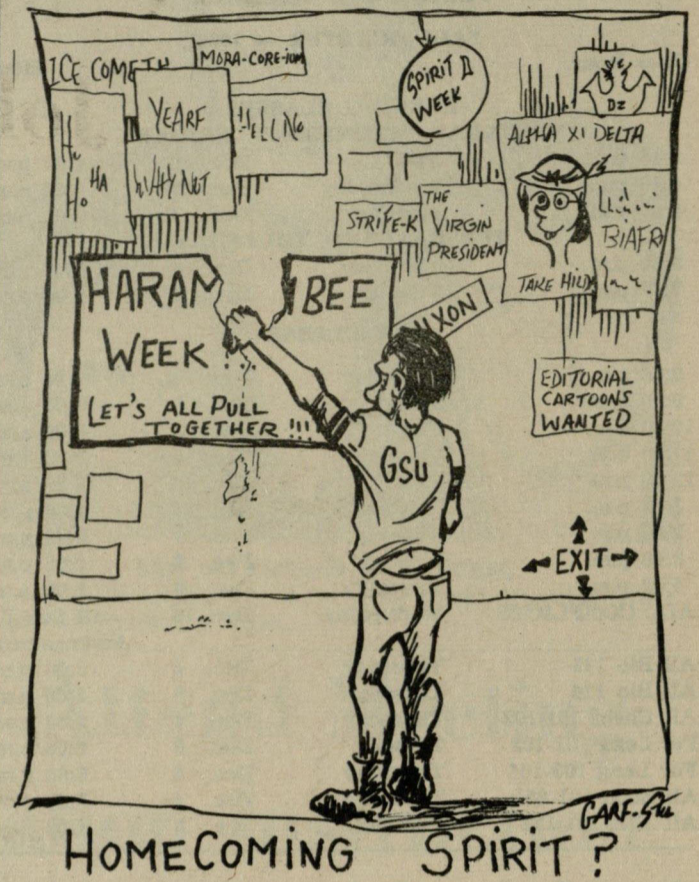 ICE COMETH
MORA-CORE-IUM
YEARF
HELL NO
WHY NOT
HA
HO HA
SPIRIT II
WEEK
DZ
ALPHA XI DELTA
TAKE
BIAFR
STRIFE-K
THE
VIRGIN
PRESIDENT
NIXON
HARAM BEE
WEEK !!
LET'S ALL PULL
TOGETHER !!!
EDITORIAL
CARTOONS
WANTED
GSU
EXIT
HOMECOMING SPIRIT?